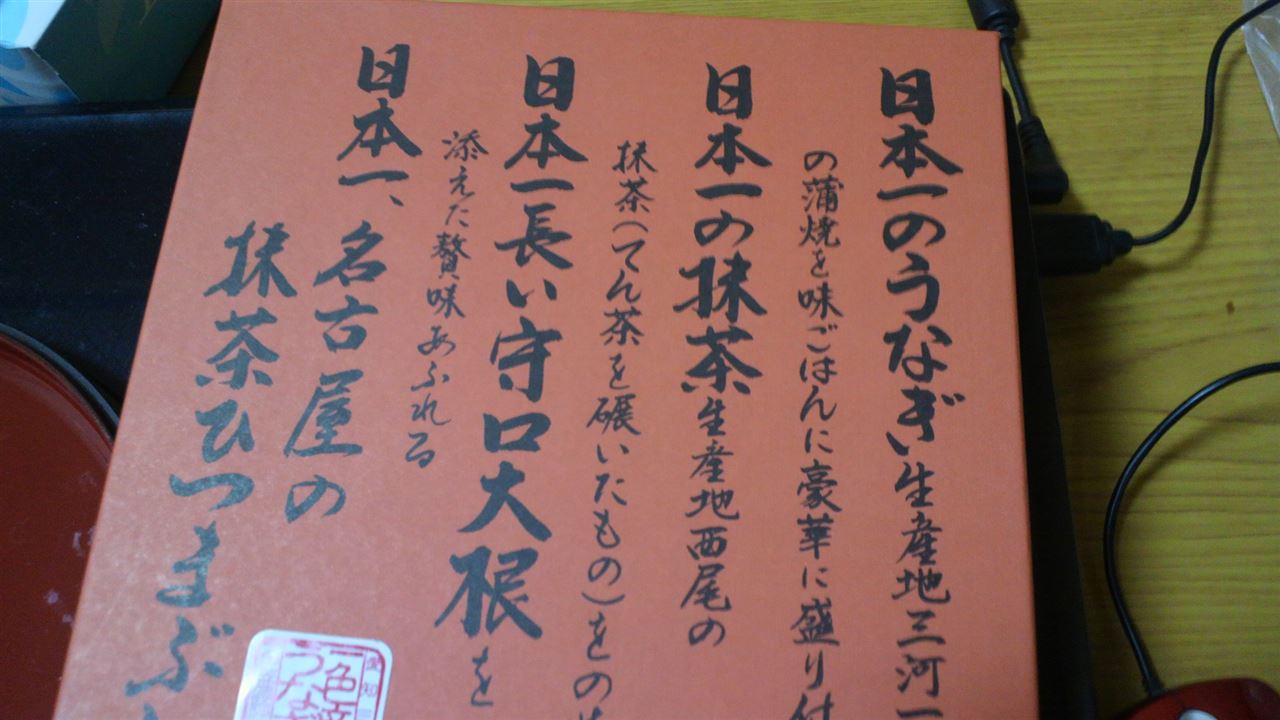 日本一のうなぎ生産地三河一
の蒲焼を味ごはんに豪華に盛り付
日本一の抹茶生産地西尾の
抹茶（てん茶を碾いたもの）をの
日本一長い守口大根を
添えた贅味あふれる
日本一、名古屋の
抹茶ひつまぶ
愛知
一色産
うなぎ